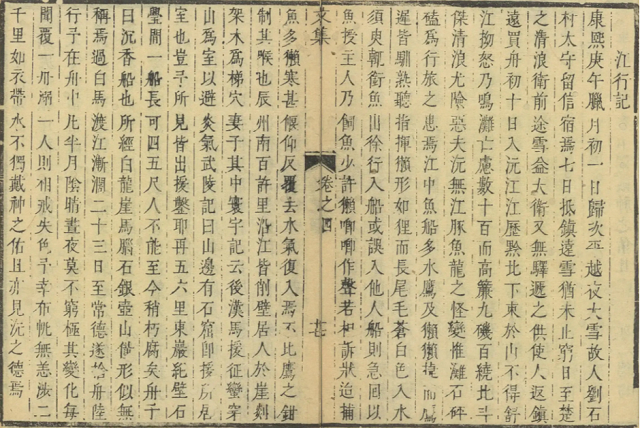 江行記
康熙庚午臘月初一日歸次玉越夜大雪故人劉石
村太守留信宿焉七日抵鎮遠雪猶未止窮日至楚
之清浪衛前途雪益大衛又無驛遞之供使人返鎮
遠買舟初十日入沅江江歷黔北下東於山不得舒
江拗怒乃鳴灘亡慮數十百而高簾九磯百繞北斗
傑清浪尤險惡夫沉無江豚魚龍之怪變惟灘石硨
猛為行旅之患焉江中魚船多水鷹及獺獺捷而屬
遲皆馴熟聽指揮獺形如狸而長尾毛蒼白色入水
須臾輒銜魚出徐行入船或誤入他人船則急回以
魚授主人乃飼魚少許獺唧唧作聲若和訴狀迨捕
文集 卷之四
魚多獺寒甚偃仰反覆去水氣復入焉不比鷹之鉗
制其喉也辰州南百許里沿江皆削壁居人於崖剡
架木為梯穴妻子其中寰宇記云後漢馬援征蠻穿
山為室以避炎氣武陵記曰山邊有石窟即援所居
室也豈予所見皆出援鑿耶再五六里東巖絶壁石
璺間一船長可四五尺人不能至今稍朽腐矣舟子
曰沉香船也所經白龍崖馬腦石銀壺山偹形似無
稱焉過白馬渡江漸濶二十三日至常德遂捨舟陸
行予在舟中凡半月陰晴晝夜莫不窮極其變化每
聞覆一舟溺一人則相戒失色予幸布帆無恙汝二
千里如衣帶水不獨戴神之佑且亦見沅之德焉